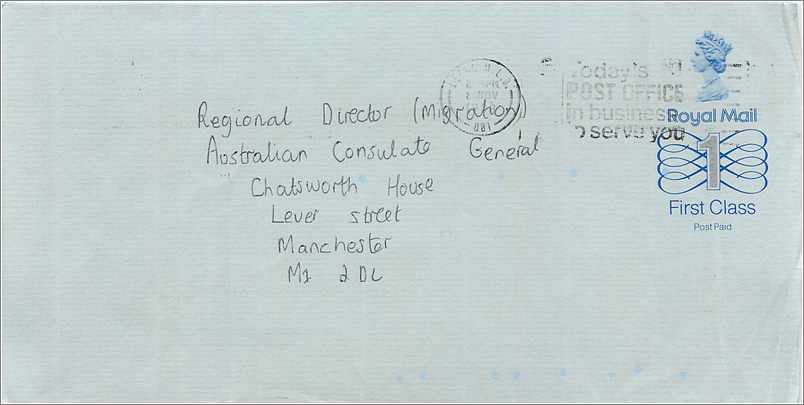 Today's
POST OFFICE
in business
to serve you
Royal Mail
1
First Class
Post Paid
Regional Director (Migration)
Australian Consulate General
Chatsworth House
Lever street
Manchester
M1 2DL